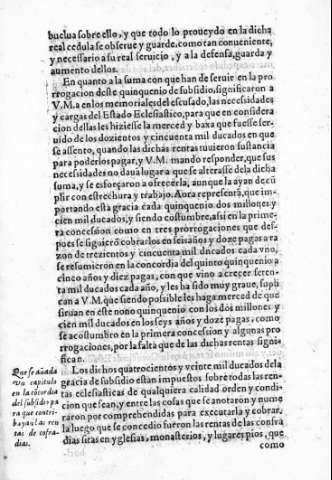 buelua sobre ello, y que todo lo proueydo en la dicha
real cedula se obserue y guarde, como tan conueniente,
y necessario a su real seruicio, y a la defensa, guarda y
aumento dellos.
En quanto a la suma con que han de seruir en la pro
rrogacion deste quinquenio de subsidio, significaron a
V. M. a en los memoriales del escusado, las necessidades
y cargas del Estado Eclesiastico, para que en considera
cion dellas les hiziesse la merced y baxa que fuesse ser-
uido de los dozientos y cincuenta mil ducados en que
se assento, quando las dichas rentas tuuieron sustancia
para poderlos pagar, y V. M. mando responder, que sus
necessidades no daua lugar a que se alterasse de la dicha
suma, y se esforçaron a ofrecerla, aunque la ayan de cũ
plir con estrechura y trabajo. Aora representã, que im-
portando esta gracia cada quinquenio dos millones y
cien mil ducados, y siendo costumbre, assi en la prime-
ra concession como en tres prorrogaciones que des-
pues se siguierõ cobrarlos en seis años y doze pagas a ra
zon de trezientos y cincuenta mil ducados cada vno,
se resumieron en la concordia del quinto quinquenio a
cinco años y diez pagas, con que vino a crecer seten-
ta mil ducados cada año, y les ha sido muy graue, supli
can a V. M. que siendo possible les haga merced de que
siruan en este nono quinquenio con los dos millones y
cien mil ducados en los seys años y doze pagas, como
se acostumbro en la primera concession y algunas pro
rrogaciones, por la falta que de las dichas rentas signi-
fican.
Los dichos quatrocientos y veinte mil ducados dela
gracia de subsidio estan impuestos sobre todas las ren-
tas eclesiasticas de qualquiera calidad orden y condi-
cion que sean, y entre las cosas que se anotaron y nume
raron por comprehendidas para executarla y cobrar-
la luego que se concedio fueron las rentas de las confra
dias sitas en yglesias, monasterios, y lugares pios, que
como
Que se añada
vn capitulo
en la cõcordia
del subsidio pa
ra que contri-
buyan las ren
tas de cofra-
dias.